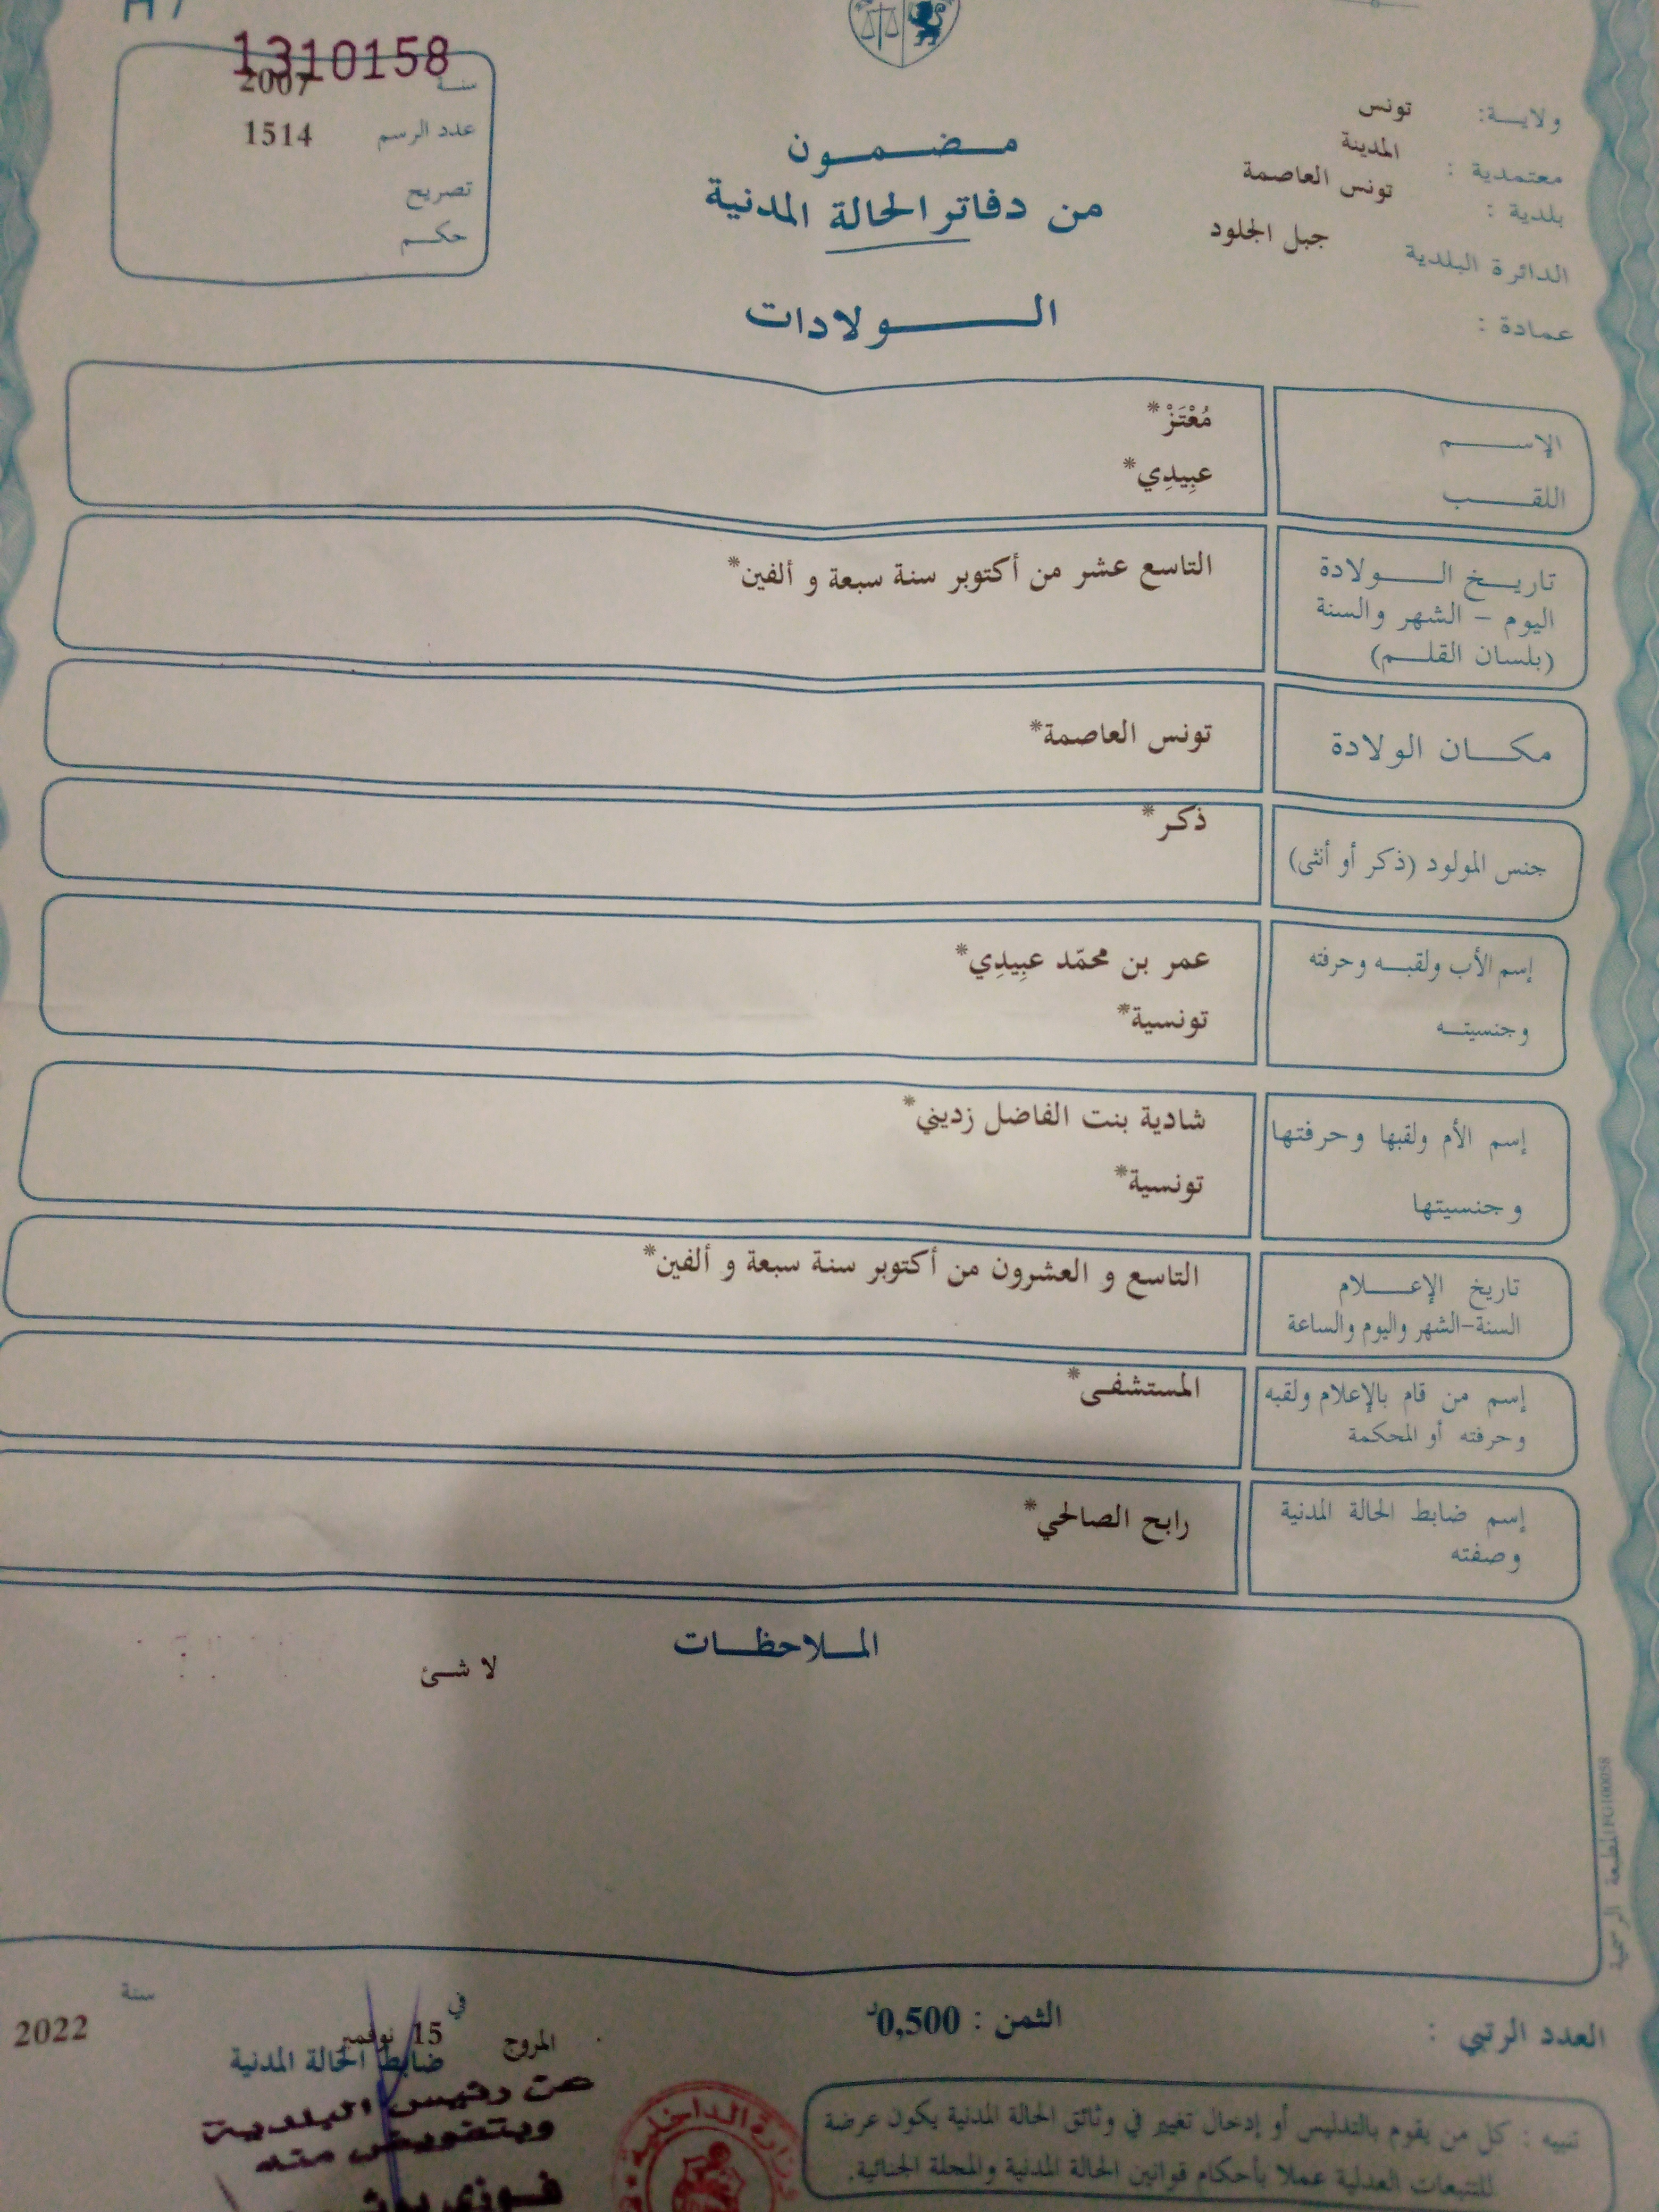 1310158
سنة 2007
عدد الرسم 1514
تصريح
حكم
ولاية: تونس
معتمدية : المدينة
بلدية : تونس العاصمة
الدائرة البلدية جبل الجلود
عمادة :
مضمون
من دفاتر الحالة المدنية
الولادات
الإسم مُعْتَزْ*
اللقب عبِيدِي*
تاريخ الولادة
اليوم - الشهر والسنة
(بلسان القلم)
التاسع عشر من أكتوبر سنة سبعة و ألفين*
مكان الولادة تونس العاصمة*
جنس المولود (ذكر أو أنثى) ذكر*
إسم الأب ولقبه وحرفته عمر بن محمّد عبِيدِي*
وجنسيته تونسية*
إسم الأم ولقبها وحرفتها شادية بنت الفاضل زديني*
وجنسيتها تونسية*
تاريخ الإعلام التاسع و العشرون من أكتوبر سنة سبعة و ألفين*
السنة-الشهر واليوم والساعة
إسم من قام بالإعلام ولقبه المستشفى*
وحرفته أو المحكمة
إسم ضابط الحالة المدنية رابح الصالحي*
وصفته
الملاحظات
لا شئ
المطبعة الرسمية
العدد الرتبي :
الثمن : 0,500د
المروج في 15 نوفمبر سنة 2022
ضابط الحالة المدنية
عن رئيس البلدية
وبتفويض منه
فوزي
وزارة الداخلية
تنبيه : كل من يقوم بالتدليس أو إدخال تغيير في وثائق الحالة المدنية يكون عرضة
للتتبعات العدلية عملا بأحكام قوانين الحالة المدنية والمجلة الجنائية.